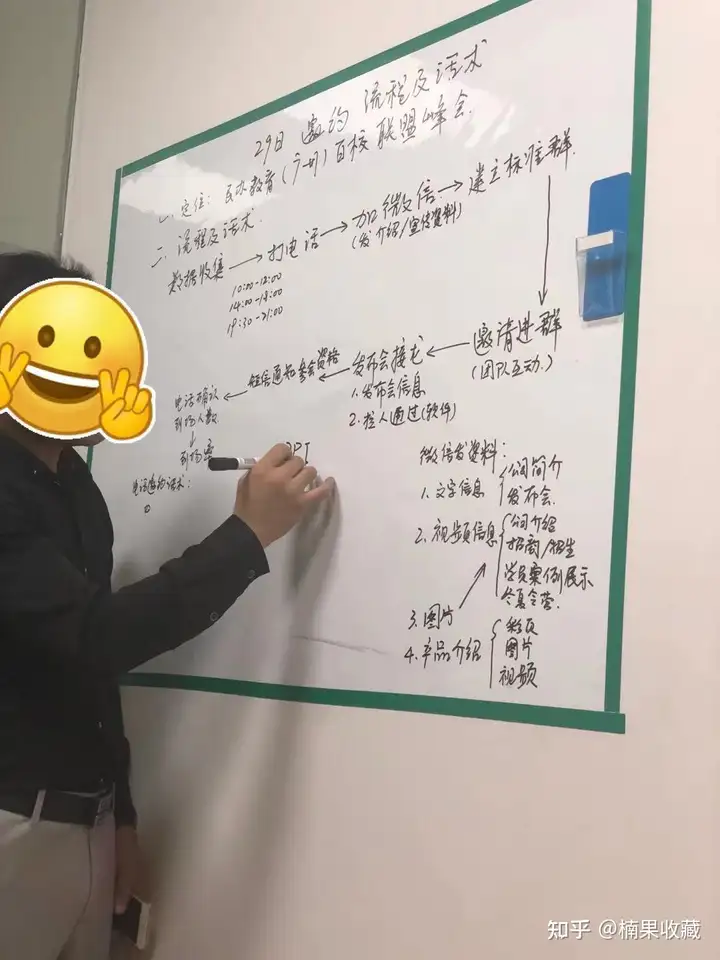 29日 邀约 流程及话术
一、定位：民办教育（广州）百校联盟峰会.
二、流程及话术.
数据收集 → 打电话 → 加微信 → 建立标准群
10:00-12:00
14:00-18:00
19:30-21:00
(发介绍/宣传资料)
邀请进群
(团队互动.)
← 发布会接龙
1. 发布会信息
2. 拉人通过(软件)
← 短信通知参会资格
← 电话确认
到场人数
↓
到场率
电话邀约话术：
①
PPT
微信发资料：
1. 文字信息 { 公司简介
发布会.
2. 视频信息 { 公司介绍
招商/招生
学员案例展示
冬夏令营.
3. 图片
4. 产品介绍 { 彩页
图片
视频
知乎 @楠果收藏